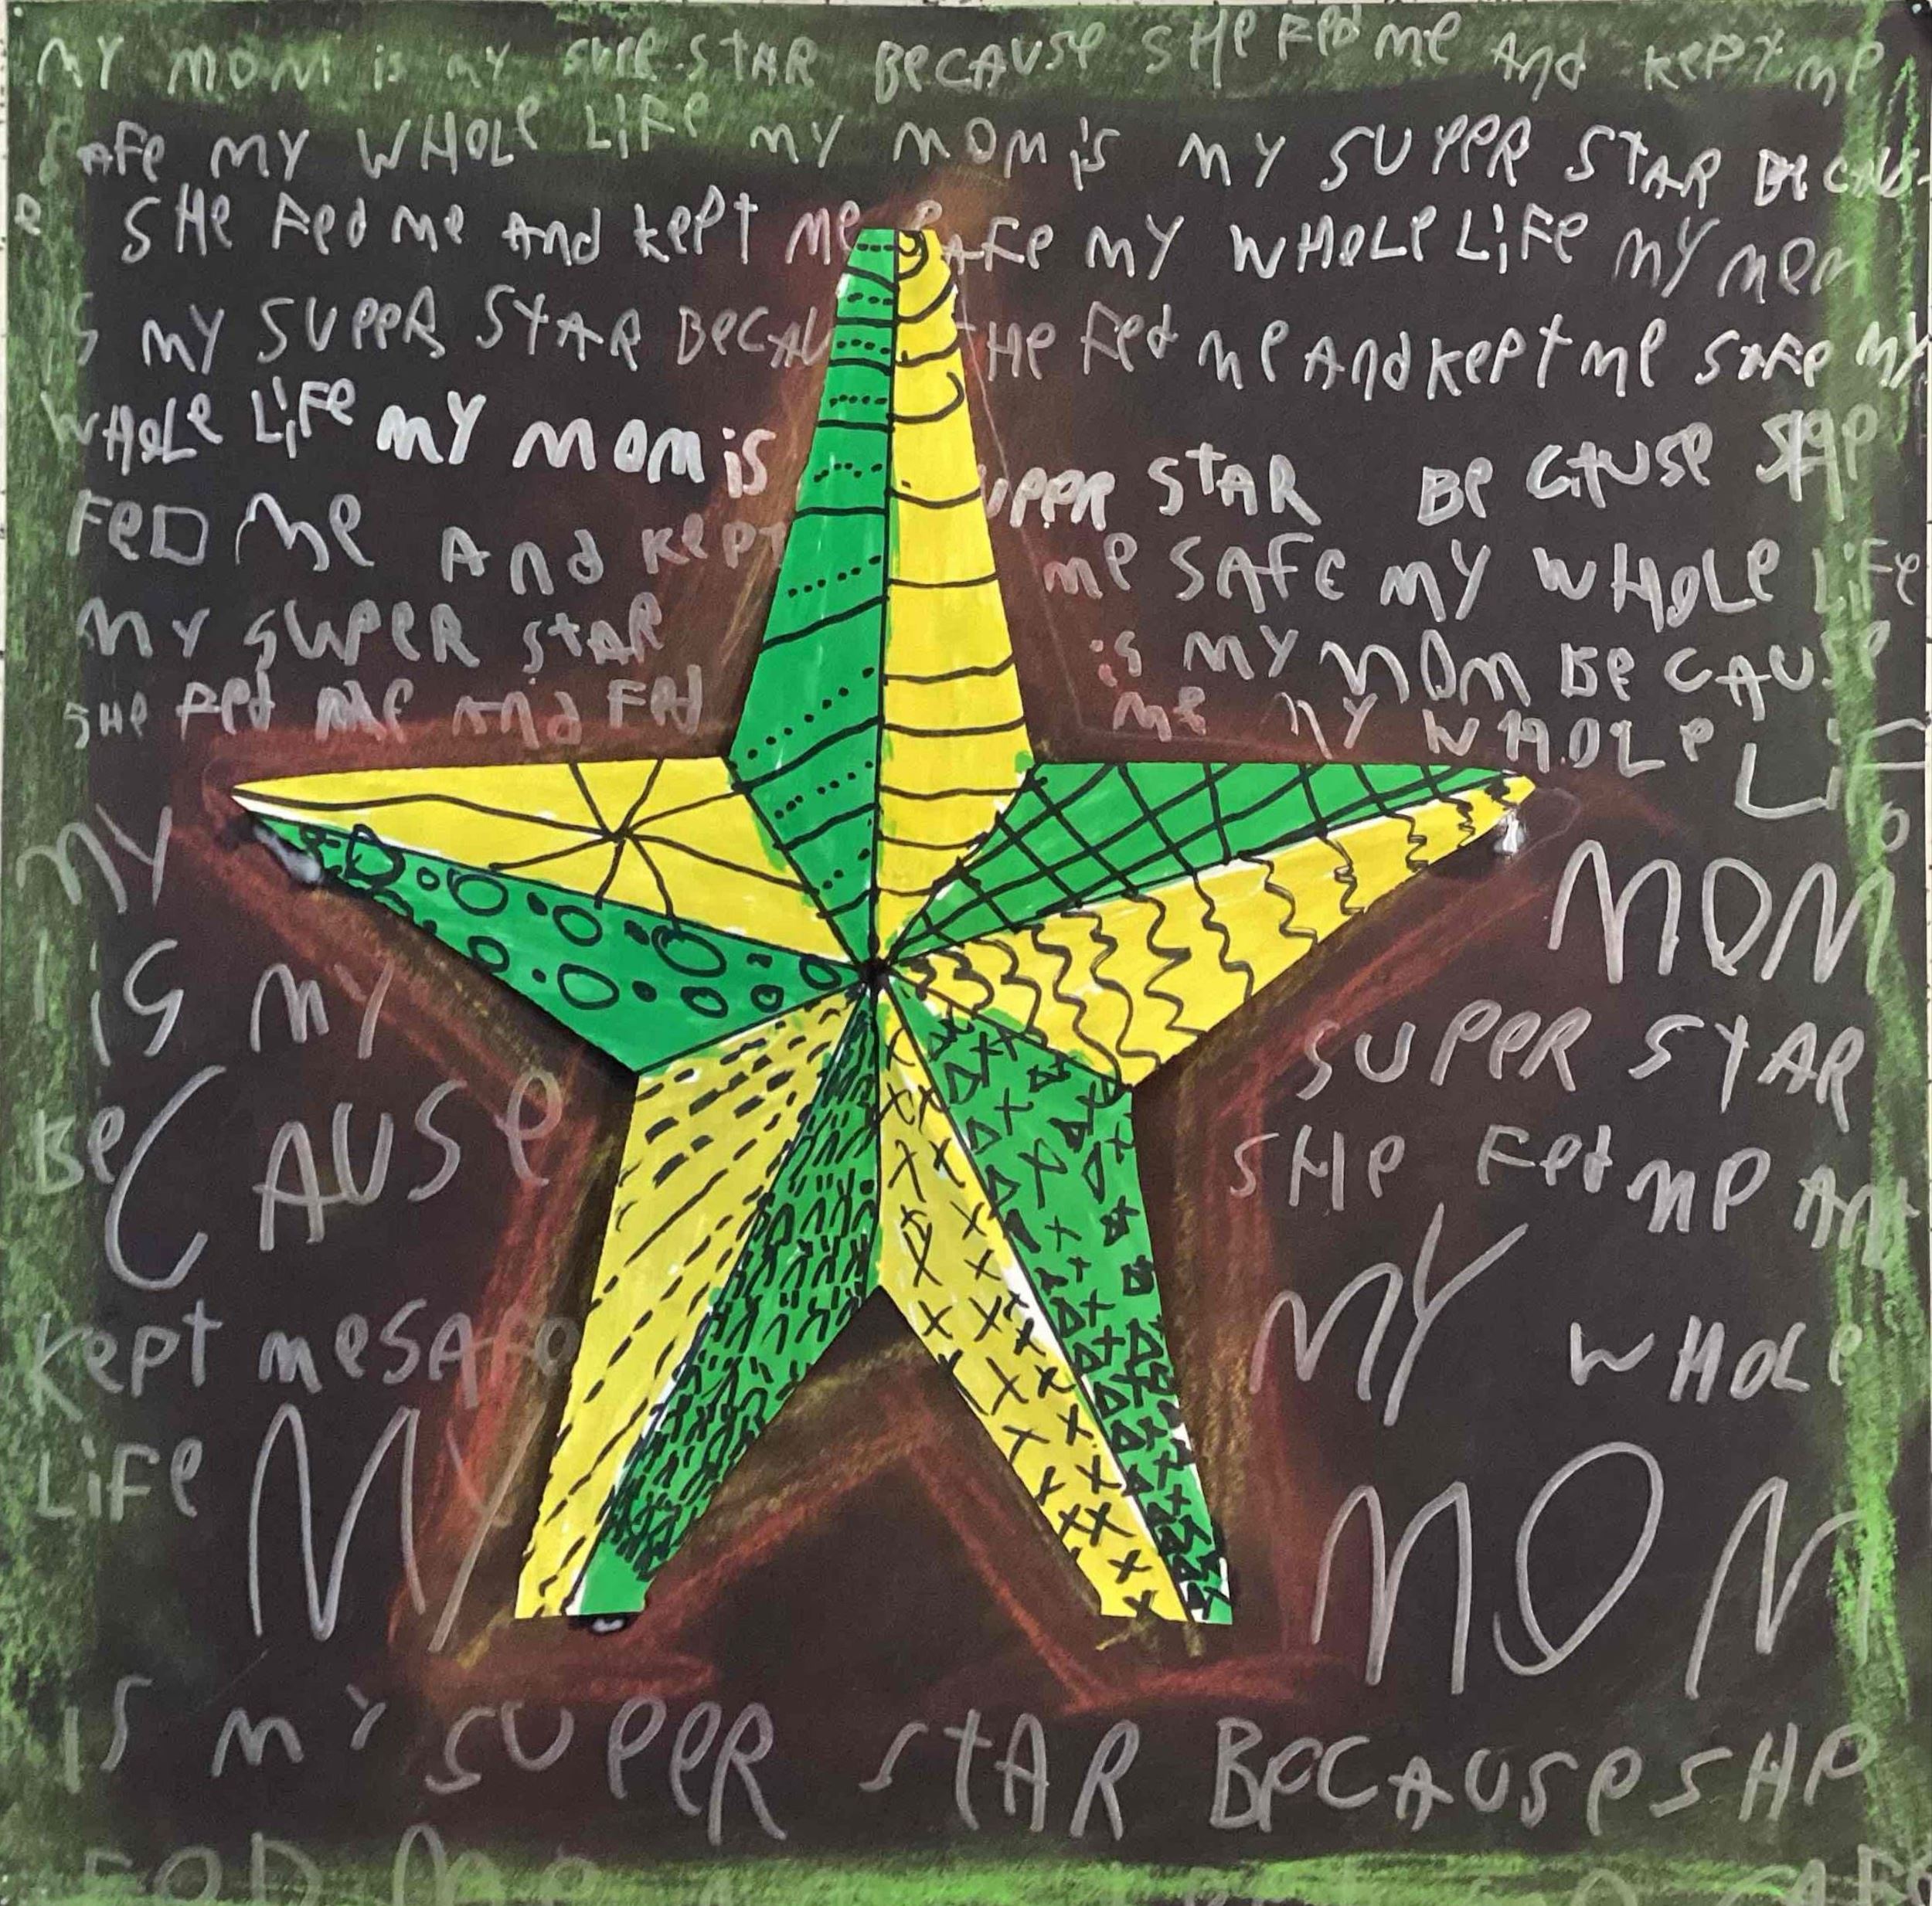 MY MOM is MY SUPE STAR BECAUSE SHE FED ME AND KEPT ME
SAFE MY WHOLE LIFE MY MOM is MY SUPER STAR BECAUS
E SHE FED ME AND KEPT ME SAFE MY WHOLE LIFE MY MOM
IS MY SUPER STAR BECAU THE FED ME AND KEPT ME SAFE MY
WHOLE LIFE MY MOM is UPER STAR BE CAUSE SHE
FED ME AND KEPT ME SAFE MY WHOLE LIFE
MY SUPER STAR is MY MOM BECAUSE
SHE FED ME AND FED ME MY WHOLE LiF
MY MOM
iS MY SUPER STAR
BECAUSE SHE FED ME AN
KEPT ME SAFE MY WHOLE
LIFE MY MOM
IS MY SUPER STAR BECAUSE SHE
FED ME SAFE